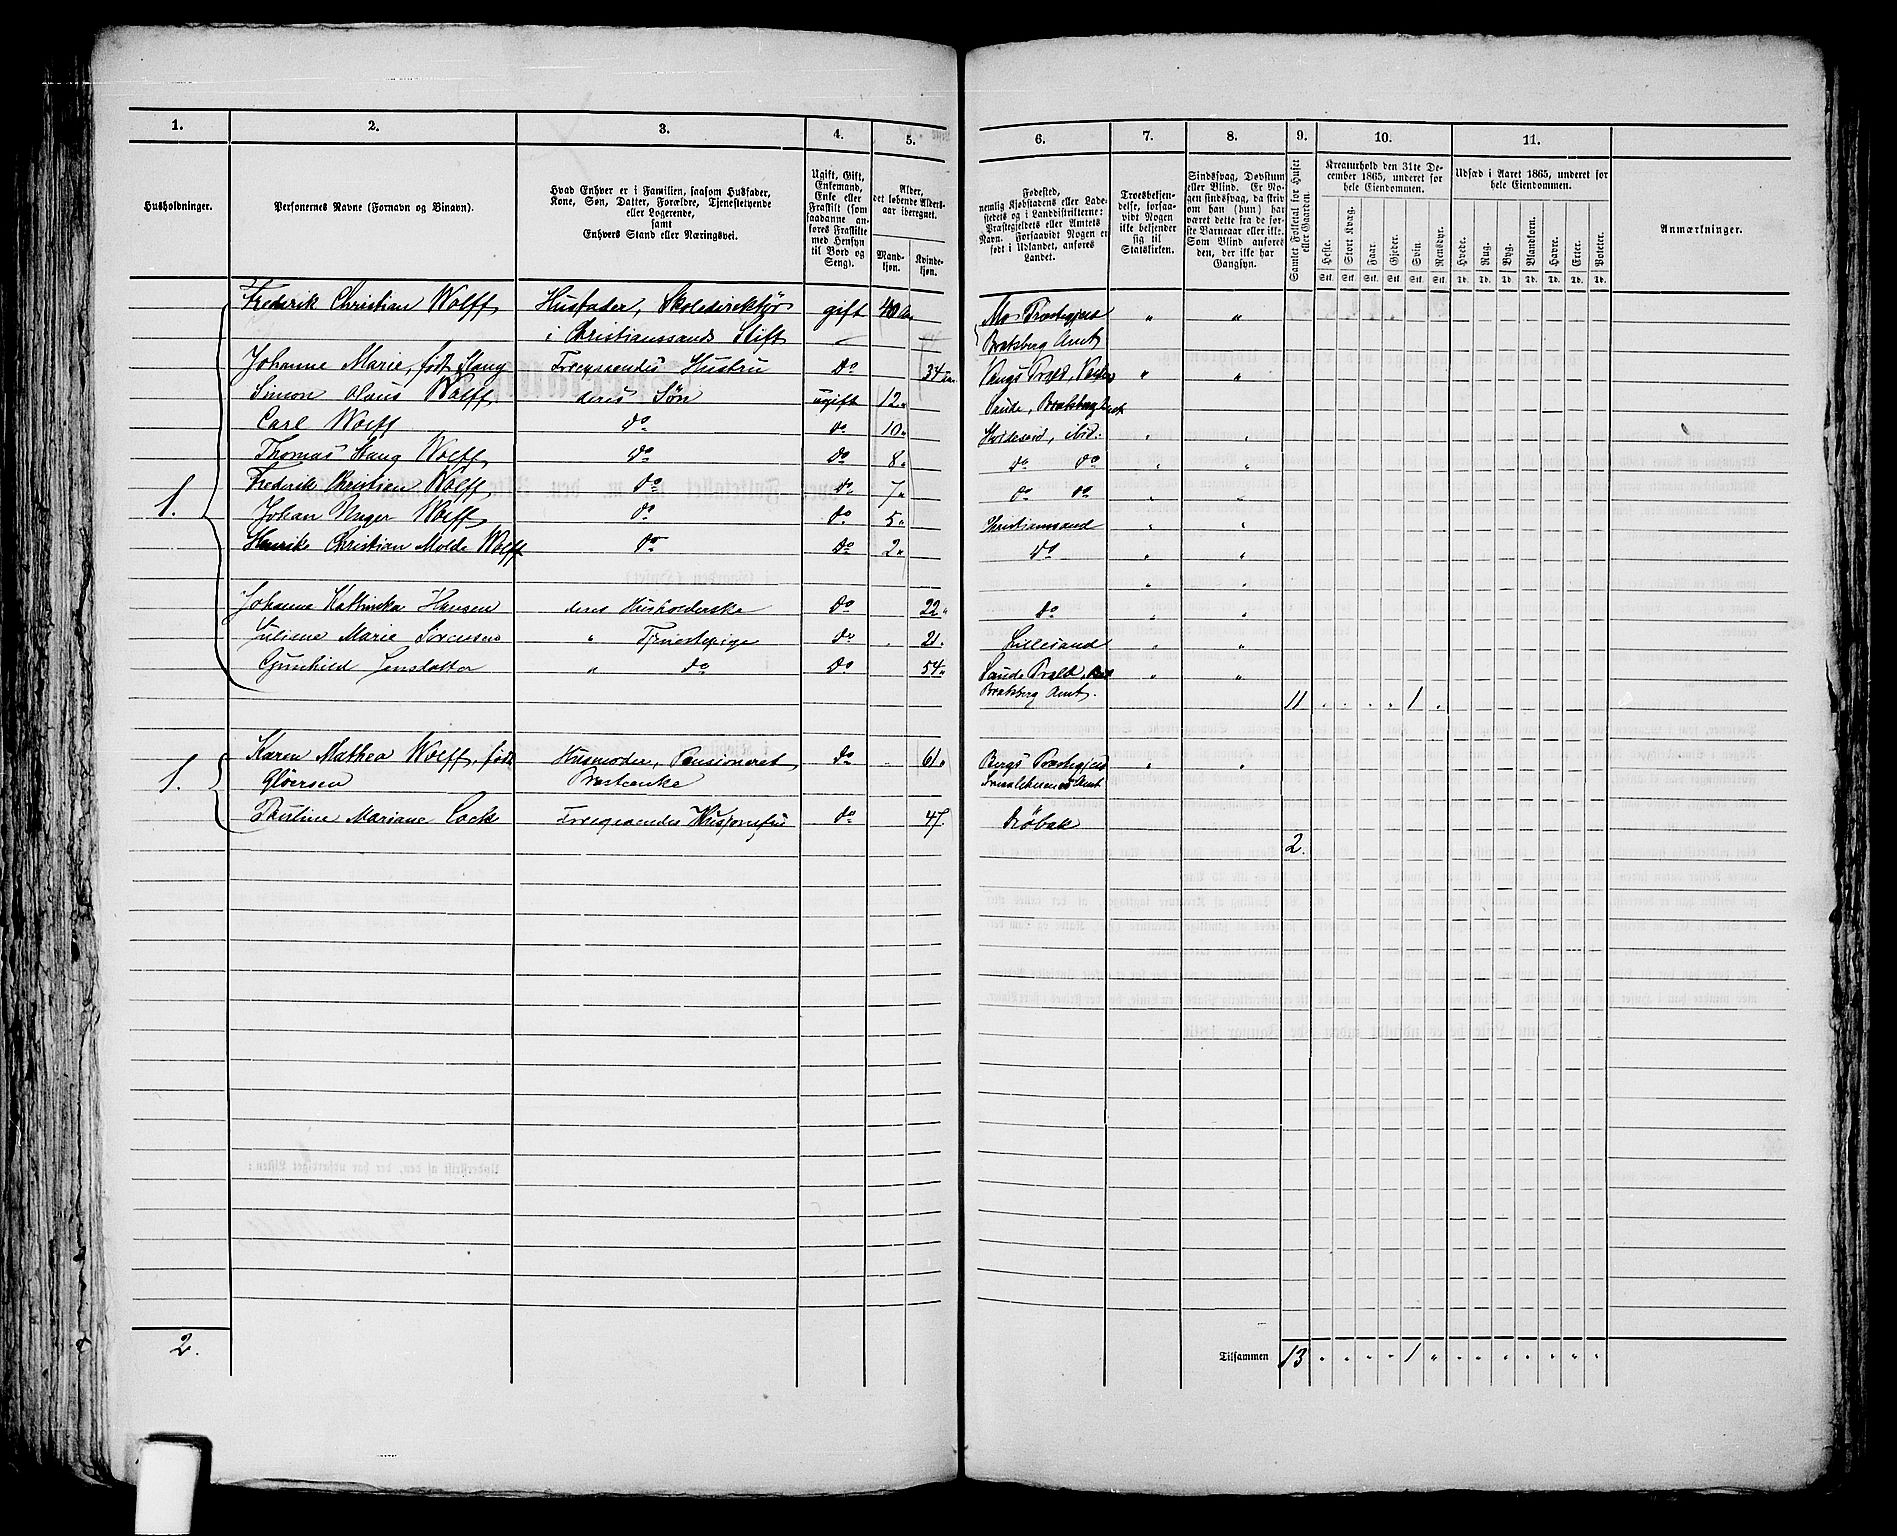 1. 2. 3. 4. 5. 6. 7. 8. 9. 10. 11.
Husholdninger.
Personernes Navne (Fornavn og Binavn).
Hvad Enhver er i Familien, saasom Husfader,
Kone, Søn, Datter, Forældre, Tjenestetyende
eller Logerende,
samt
Enhvers Stand eller Næringsvei.
Ugift, Gift,
Enkemand,
Enke eller
Fraskilt (som
saadanne an-
føres Fraskilte
med Hensyn
til Bord og
Seng).
Alder,
det løbende Alders-
aar iberegnet.
Mand-
kjøn.
Kvinde-
kjøn.
Fødested,
nemlig Kjøbstadens eller Lade-
stedets og i Landdistrikterne:
Præstegjeldets eller Amtets
Navn. Forsaavidt Nogen er
født i Udlandet, anføres
Landet.
Troesbekjen-
delse, forsaa-
vidt Nogen
ikke bekjender
sig til
Statskirken.
Sindssvag, Døvstum
eller Blind. Er No-
gen sindssvag, da skriv
om han (hun) har
været dette fra de før-
ste Barneaar eller ikke.
Som Blind anføres
den, der ikke har
Gangsyn.
Samlet Folketal for Huset
eller Gaarden.
Kreaturhold den 31te De-
cember 1865, underet for
hele Eiendommen.
Heste. Stort Kvæg. Faar. Gjeder. Svin. Rensdyr.
Stk. Stk. Stk. Stk. Stk. Stk.
Udsæd i Aaret 1865, underet for
hele Eiendommen.
Hvede. Rug. Byg. Blandkorn. Havre. Erter. Poteter.
Td. Td. Td. Td. Td. Td. Td.
Anmærkninger.
Frederik Christian Wolff Husfader, Skoledirektør gift 40 Mo Præstegjeld " "
i Christianssands Stift Bratsberg Amt
Johanne Marie, født Stang Foregaaendes Hustru do 34 Vangs Prgld, " "
Simon Olaus Wolff deres Søn ugift 12 " Saude, Bratsberg Amt
Carl Wolff do do 10 " Hvideseid, ibid. " "
Thomas Stang Wolff do do 8 " do do " "
1. Frederik Christian Wolff do do 7 " do do " "
Johan Unger Wolff do do 5 " Christianssand " "
Henrik Christian Molde Wolff do do 2 " do " "
" "
Johanne Kathinka Hansen deres Husholderske do 22 " do "
Juliane Marie Sørensen " Tjenestepige do 21. Lillesand " "
Gunhild Jonsdatter " do do 54 " Saude Prgld, " "
Bratsberg Amt. 11 . . . . 1 .
Karen Mathea Wolff, født Husmoder, Pensioneret do 61 " Bergs Præstegjeld " "
1. Gløersen Præsteenke Smaalehnenes Amt
Pauline Mariane Lock Foregaaendes Husjomfru do 47. Drøbak
2.
2. Tilsammen 13 " " " " 1 " " " " " " " "